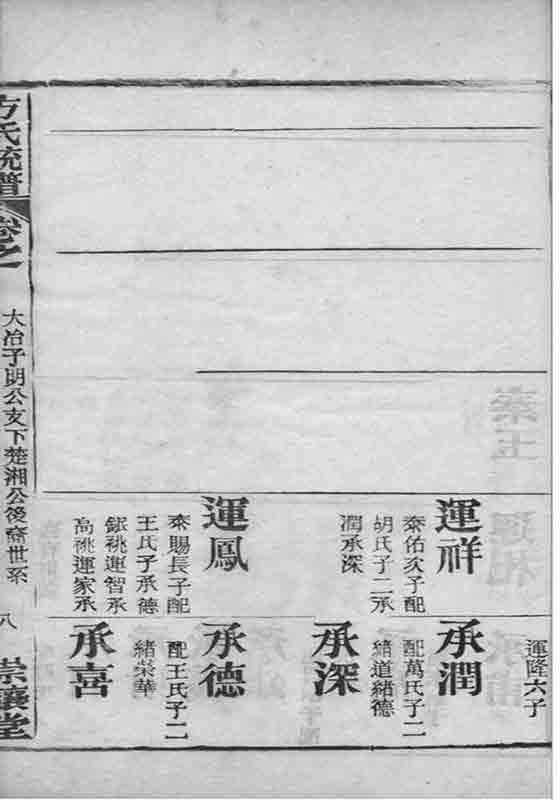 運祥
泰佑次子配
胡氏子二承
潤承深
運鳳
泰賜長子配
王氏子承德
祧運智承
高祧運家承
運隆六子
承潤
配萬氏子二
緒道緒德
承深
承德
配王氏子二
緒榮華
承喜
方氏統譜
卷之
大冶子明公支下楚湘公後裔世系
八
崇讓堂